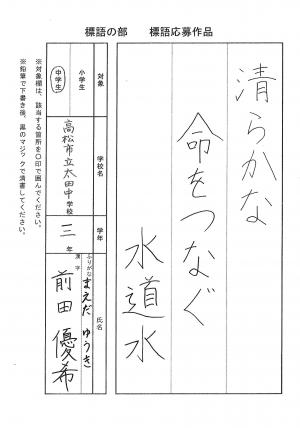 標語の部　標語応募作品
清らかな
命をつなぐ
水道水
対象
小学生
中学生
学校名
高松市立太田中学校
学年
三年
氏名
ふりがな
まえだ ゆうき
漢字
前田 優希
※対象欄は、該当する箇所を○印で囲んでください。
※鉛筆で下書き後、黒のマジックで清書してください。